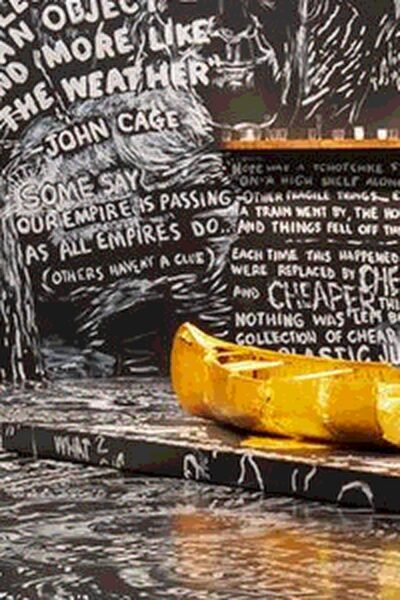 AN OBJECT
ND "MORE LIKE
THE WEATHER"
-JOHN CAGE
SOME SAY
OUR EMPIRE IS PASSING
AS ALL EMPIRES DO..
(OTHERS HAVEN'T A CLUE)
HOPE WAS A TCHOTCHKE
ON A HIGH SHELF ALON
OTHER FRAGILE THINGS...
A TRAIN WENT BY, THE HO
AND THINGS FELL OFF TH
EACH TIME THIS HAPPENED
WERE REPLACED BY CHE
AND CHEAPER THI
NOTHING WAS LEFT B
COLLECTION OF CHEAP
PLASTIC JU
WHAT?